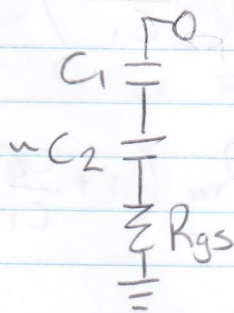 C1
"C2
Rgs